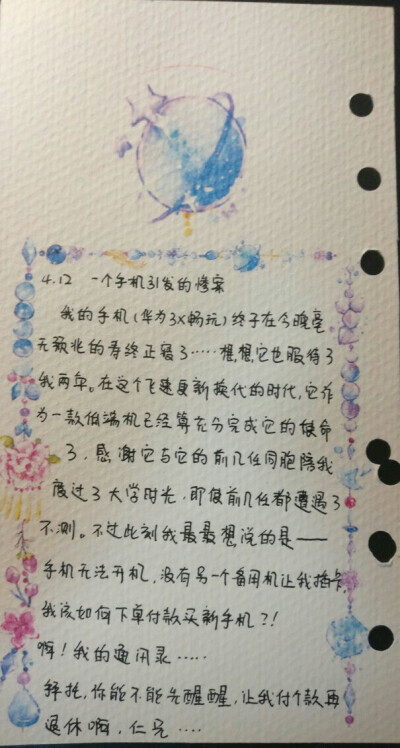 4.12 一个手机引发的惨案
我的手机(华为3X畅玩)终于在今晚毫
无预兆的寿终正寝了……想想它也服侍了
我两年。在这个飞速更新换代的时代,它作
为一款低端机已经算充分完成它的使命
了,感谢它与它的前几任同胞陪我
度过了大学时光,即使前几任都遭遇了
不测。不过此刻我最最想说的是——
手机无法开机,没有另一个备用机让我插卡,
我该如何下单付款买新手机?!
啊!我的通讯录……
拜托,你能不能先醒醒,让我付个款再
退休啊,仁兄……